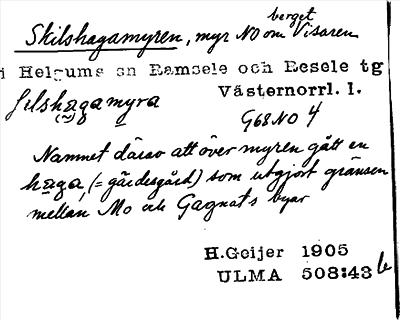 berget
Skilshagamyren, myr NO om Visaren
i Helgums sn Ramsele och Resele tg
Västernorrl. l.
ʃılshaga myra
G68NO 4
Namnet därav att över myren gått en
haga, (= gärdesgård) som utgjort gränsen
mellan Mo och Gagnets byar
H.Geijer 1905
ULMA 508:43 b